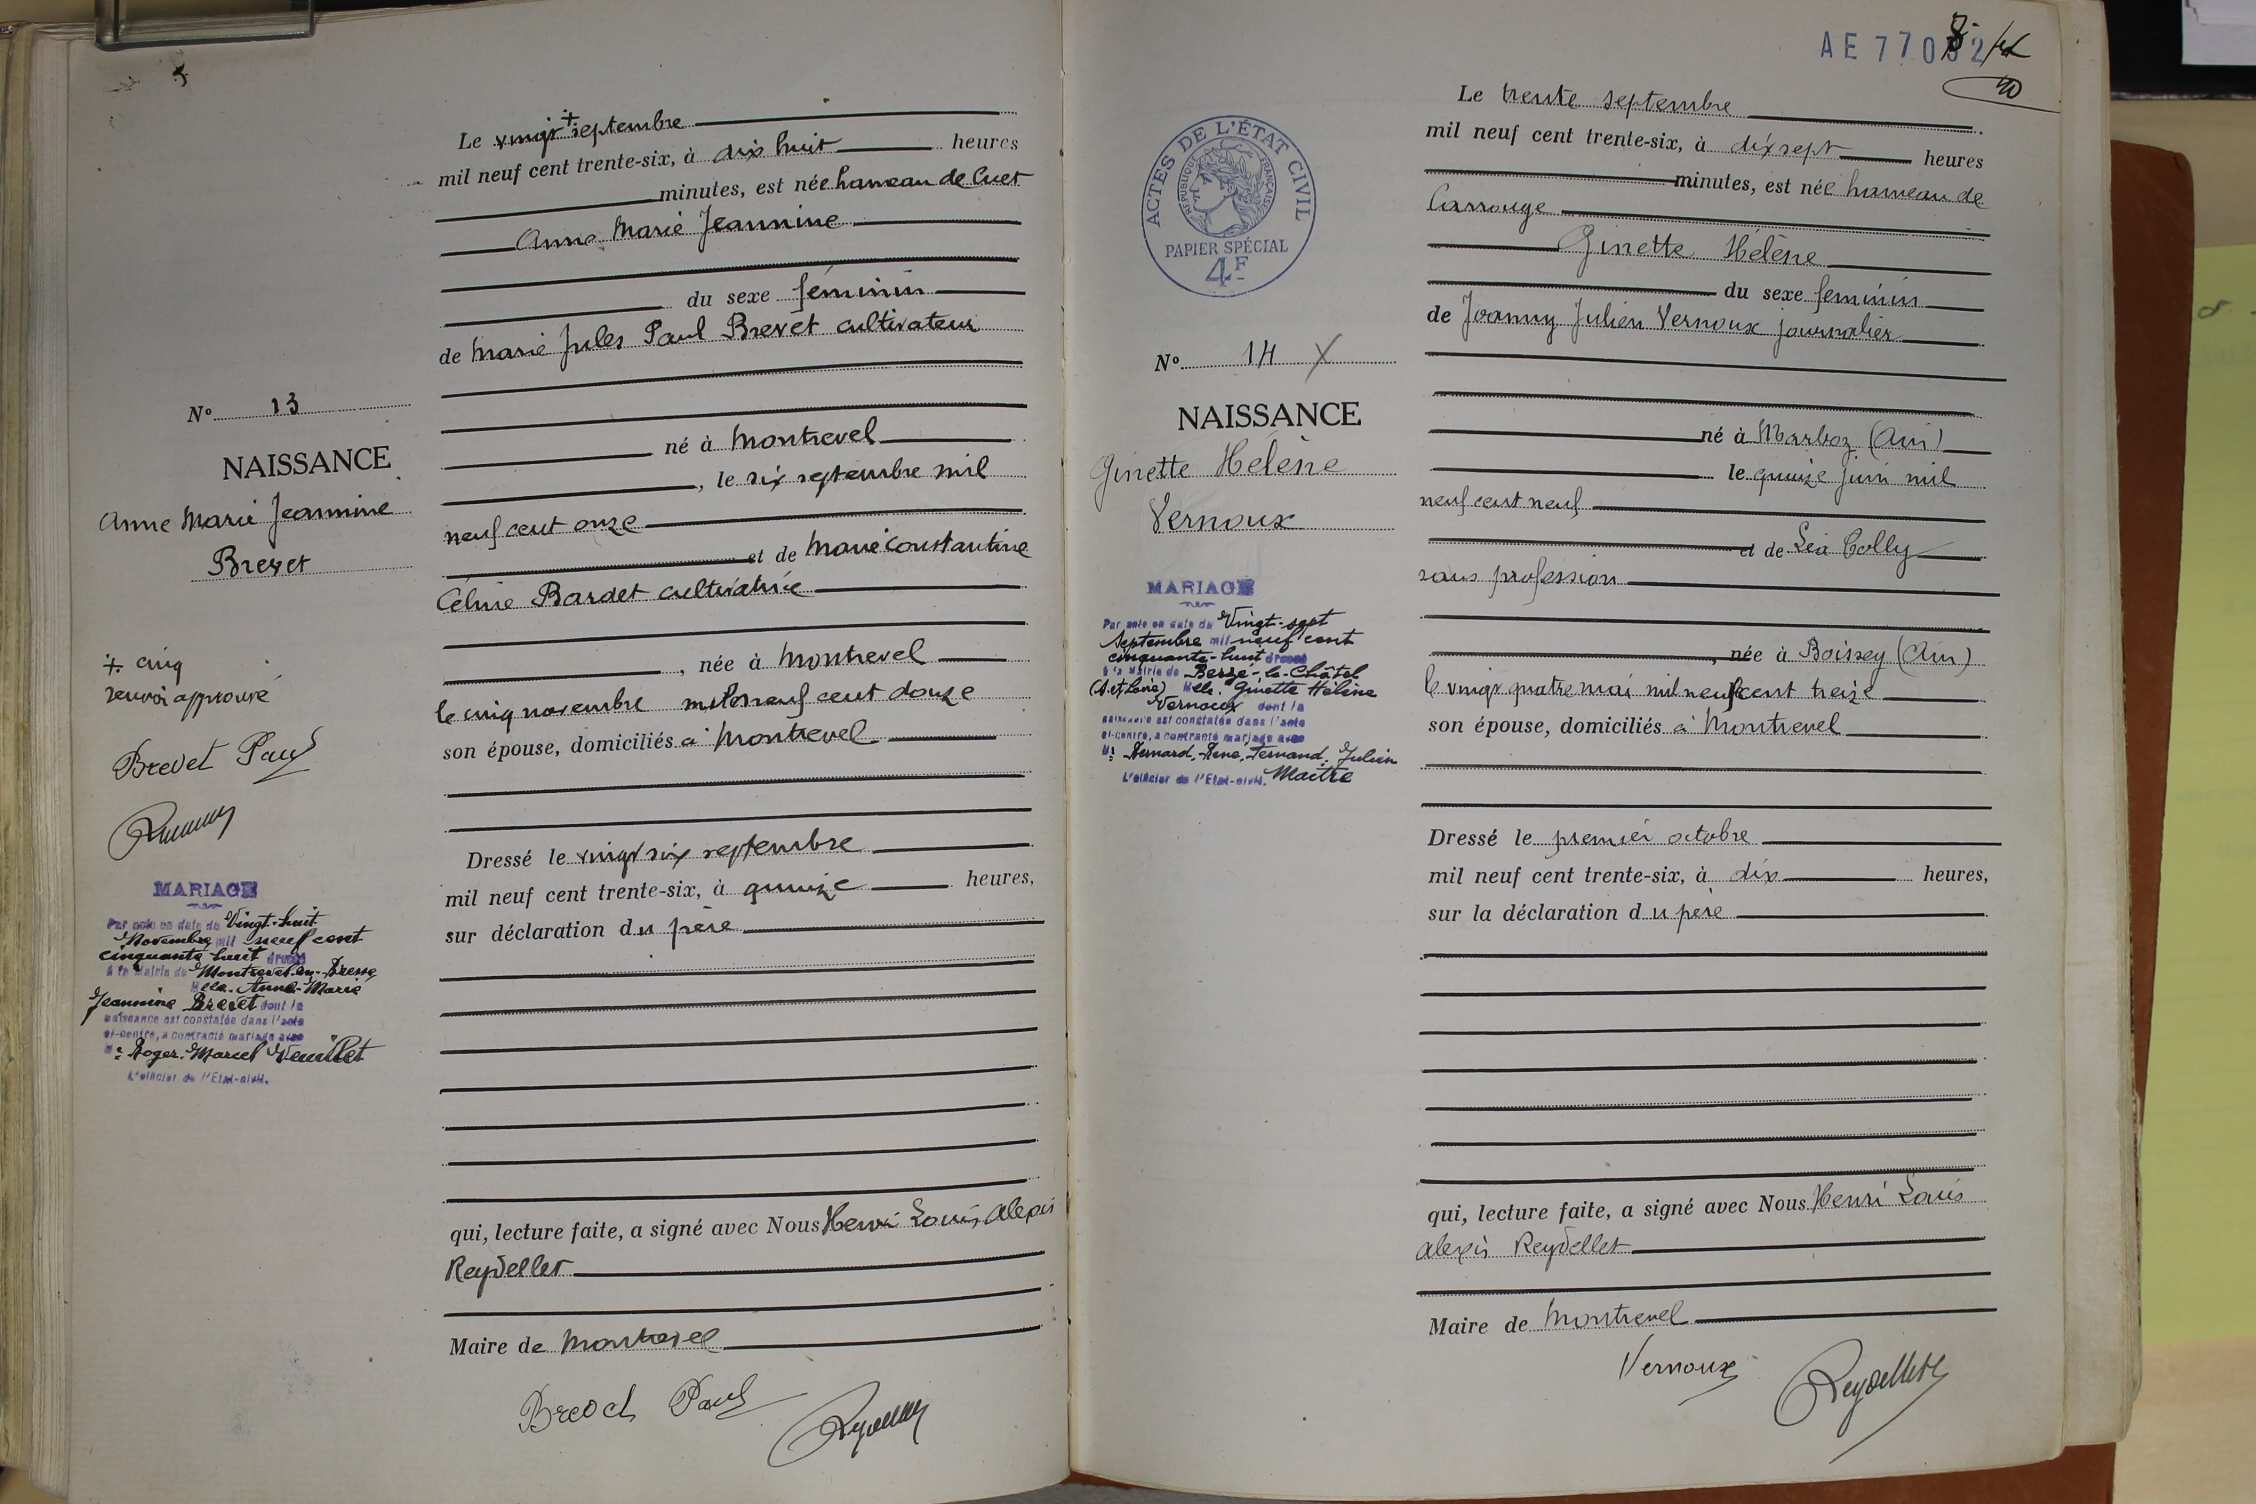 Le vingt + septembre
mil neuf cent trente-six, à dix huit heures
minutes, est née hameau de Cuet
Anne Marie Jeannine
du sexe féminin
de Marie Jules Paul Brevet cultivateur
né à Montrevel
, le six septembre mil
neuf cent onze
et de Marie Constantine
Céline Bardet cultivatrice
, née à Montrevel
le cinq novembre mil neuf cent douze
son épouse, domiciliés à Montrevel
Dressé le vingt six septembre
mil neuf cent trente-six, à quinze heures,
sur déclaration du père
qui, lecture faite, a signé avec Nous Henri Louis Alexis
Reydellet
Maire de Montrevel
Brevet Paul
Reydellet
No 13
NAISSANCE
Anne Marie Jeannine
Brevet
+ cinq
renvoi approuvé
Brevet Paul
MARIAGE
Par acte en date du Vingt-huit
Novembre mil neuf cent
cinquante-huit dressé
à la Mairie de Montrevel-en-Bresse
Melle Anne-Marie
Jeannine Brevet dont la
naissance est constatée dans l'acte
ci-contre, a contracté mariage avec
Mr Roger Marcel
L'officier de l'Etat-civil.
AE 77
ACTES DE L'ÉTAT CIVIL
RÉPUBLIQUE FRANÇAISE
PAPIER SPÉCIAL
4F
No 14 X
NAISSANCE
Ginette Hélène
Vernoux
MARIAGE
Par acte en date du Vingt-sept
Septembre mil neuf cent
cinquante-huit dressé
à la Mairie de Berzé-le-Châtel
(S.et Loire) Melle Ginette Hélène
Vernoux dont la
naissance est constatée dans l'acte
ci-contre, a contracté mariage avec
Mr Bernard, René, Fernand, Julien
L'officier de l'Etat-civil. Maitre
Le trente septembre
mil neuf cent trente-six, à dix sept heures
minutes, est née hameau de
Carrouge
Ginette Hélène
du sexe féminin
de Joanny Julien Vernoux journalier
né à Marboz (Ain)
le quinze juin mil
neuf cent neuf
et de Léa Colly
sans profession
, née à Boissey (Ain)
le vingt quatre mai mil neuf cent treize
son épouse, domiciliés à Montrevel
Dressé le premier octobre
mil neuf cent trente-six, à dix heures,
sur la déclaration du père
qui, lecture faite, a signé avec Nous Henri Louis
Alexis Reydellet
Maire de Montrevel
Vernoux
Reydellet